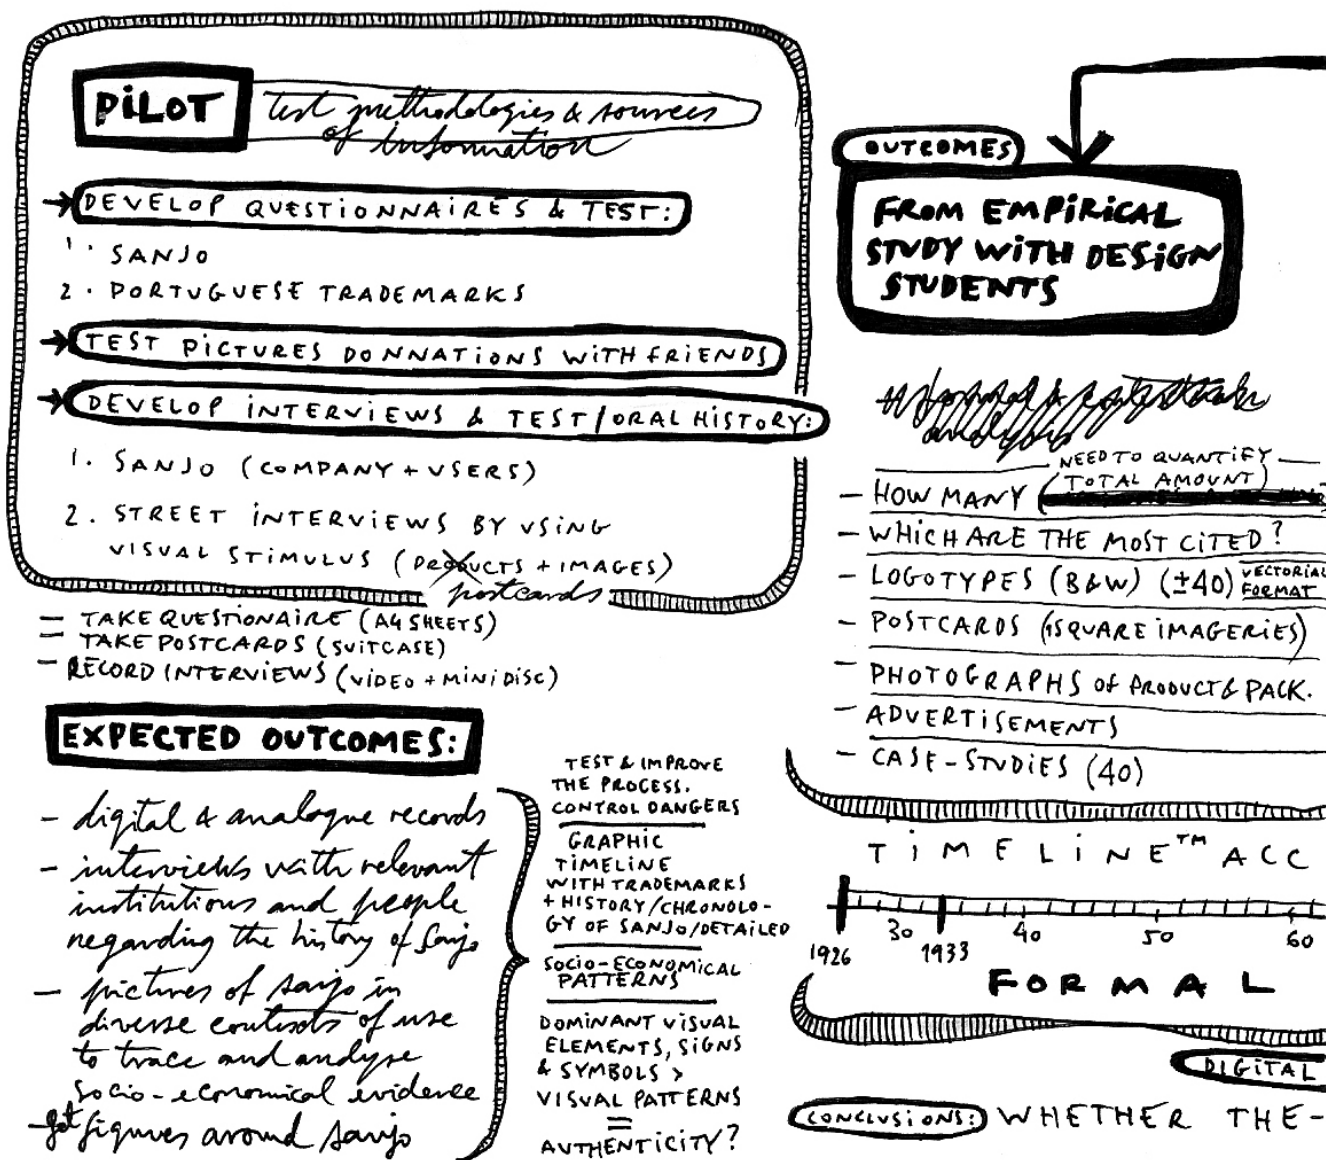 PiLOT
test methodologies & sources
of information
DEVELOP QUESTIONNAIRES & TEST:
1. SANJO
2. PORTUGUESE TRADEMARKS
TEST PiCTURES DONNATiONS WiTH FRiENDS
DEVELOP iNTERViEWS & TEST/ORAL HiSTORY:
1. SANJO (COMPANY + USERS)
2. STREET iNTERViEWS BY USiNG
ViSUAL STiMULUS (PRODUCTS + IMAGES)
postcards
– TAKE QUESTiONAIRE (A4 SHEETS)
– TAKE POSTCARDS (SUiTCASE)
– RECORD INTERViEWS (ViDEO + MiNiDiSC)
EXPECTED OUTCOMES:
– digital & analogue records
– interviews with relevant
institutions and people
regarding the history of Sanjo
– pictures of sanjo in
diverse contexts of use
to trace and analyse
socio-economical evidence
– get figures around sanjo
TEST & IMPROVE
THE PROCESS.
CONTROL DANGERS
GRAPHIC
TiMELiNE
WITH TRADEMARKS
+ HISTORY/CHRONOLO-
GY OF SANJO/DETAiLED
SOCiO-ECONOMiCAL
PATTERNS
DOMINANT ViSUAL
ELEMENTS, SiGNS
& SYMBOLS >
ViSUAL PATTERNS
=
AUTHENTiCiTY?
OUTCOMES
FROM EMPiRiCAL
STUDY WiTH DESiGN
STUDENTS
NEED TO QUANTiFY
– HOW MANY (TOTAL AMOUNT)
– WHiCH ARE THE MOST CiTED?
– LOGOTYPES (B&W) (±40) VECTORIAL
FORMAT
– POSTCARDS (15 SQUARE iMAGERiES)
– PHOTOGRAPHS OF PRODUCT & PACK.
– ADVERTiSEMENTS
– CASE-STUDiES (40)
TiMELiNE™ ACC
30 40 50 60
1926 1933
FORMAL
DiGiTAL
CONCLUSiONS: WHETHER THE-